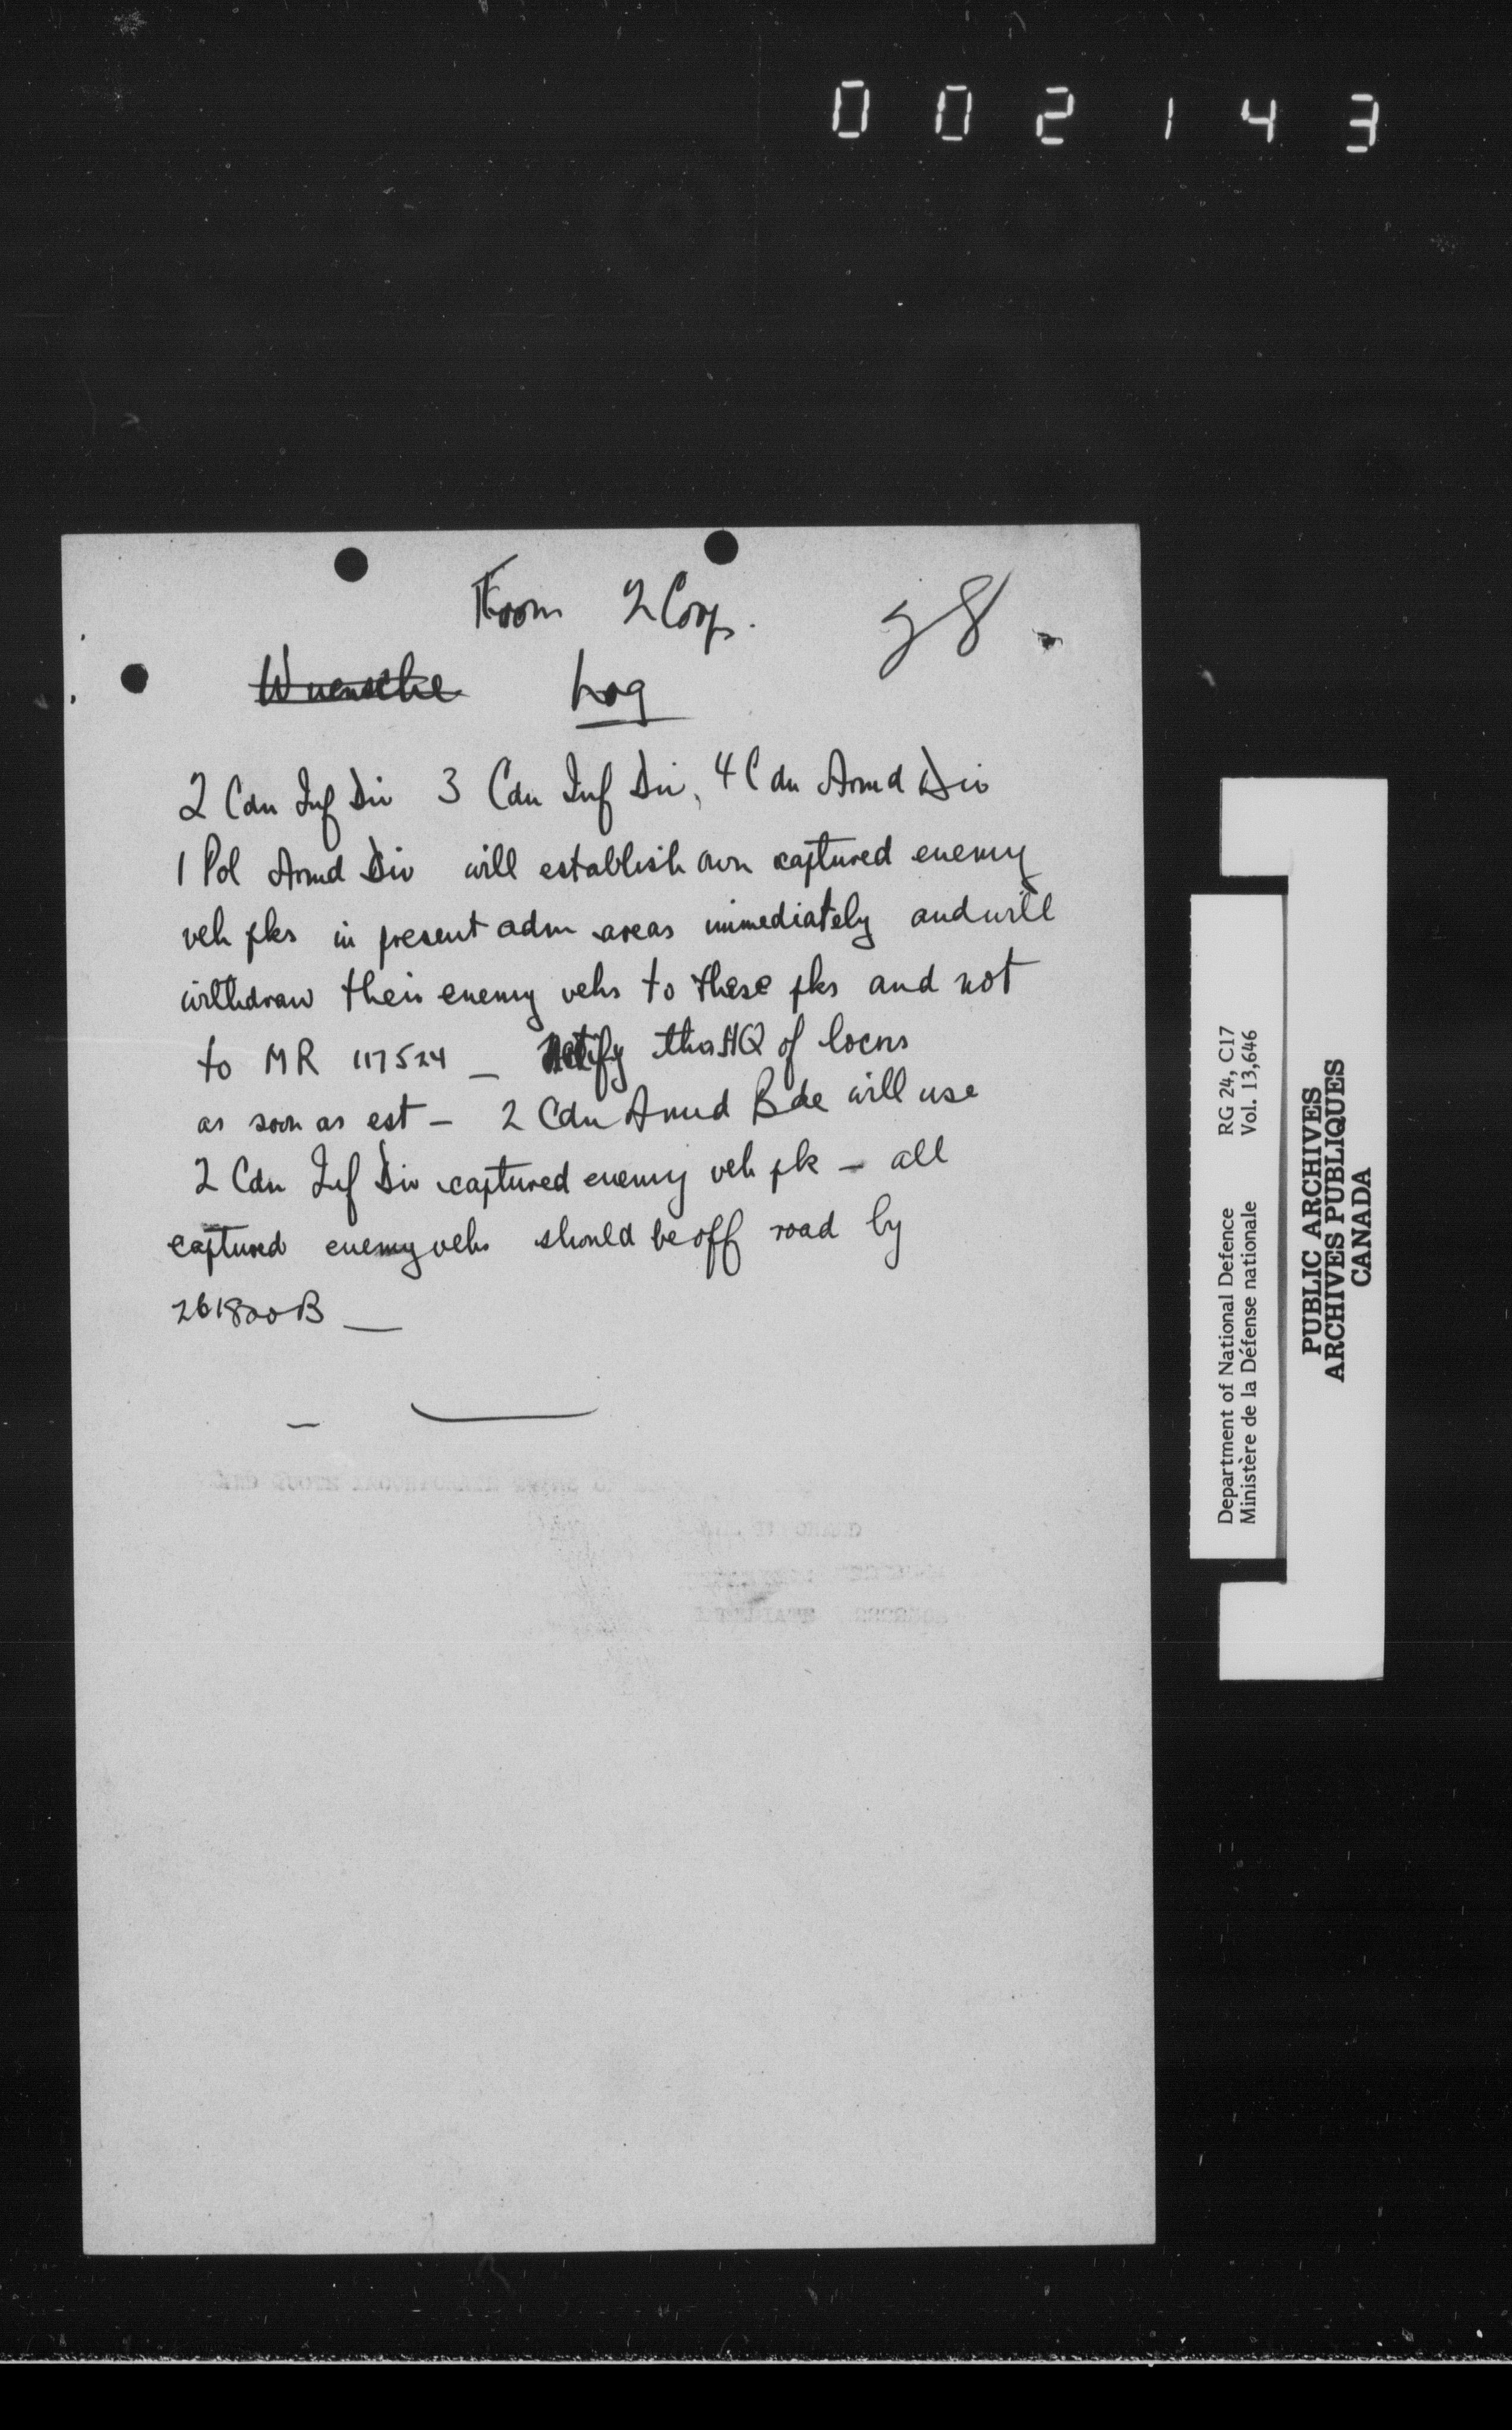 002143
From 2 Corps. 38
Wuensche Log
2 Cdn Inf Div 3 Cdn Inf Div, 4 Cdn Armd Div
1 Pol Armd Div will establish own captured enemy
veh pks in present adm areas immediately and will
withdraw their enemy vehs to these pks and not
to MR 117524 — Notify this HQ of locns
as soon as est — 2 Cdn Armd Bde will use
2 Cdn Inf Div captured enemy veh pk — all
captured enemy vehs should be off road by
261800B —
Department of National Defence RG 24, C17
Ministère de la Défense nationale Vol. 13,646
PUBLIC ARCHIVES
ARCHIVES PUBLIQUES
CANADA